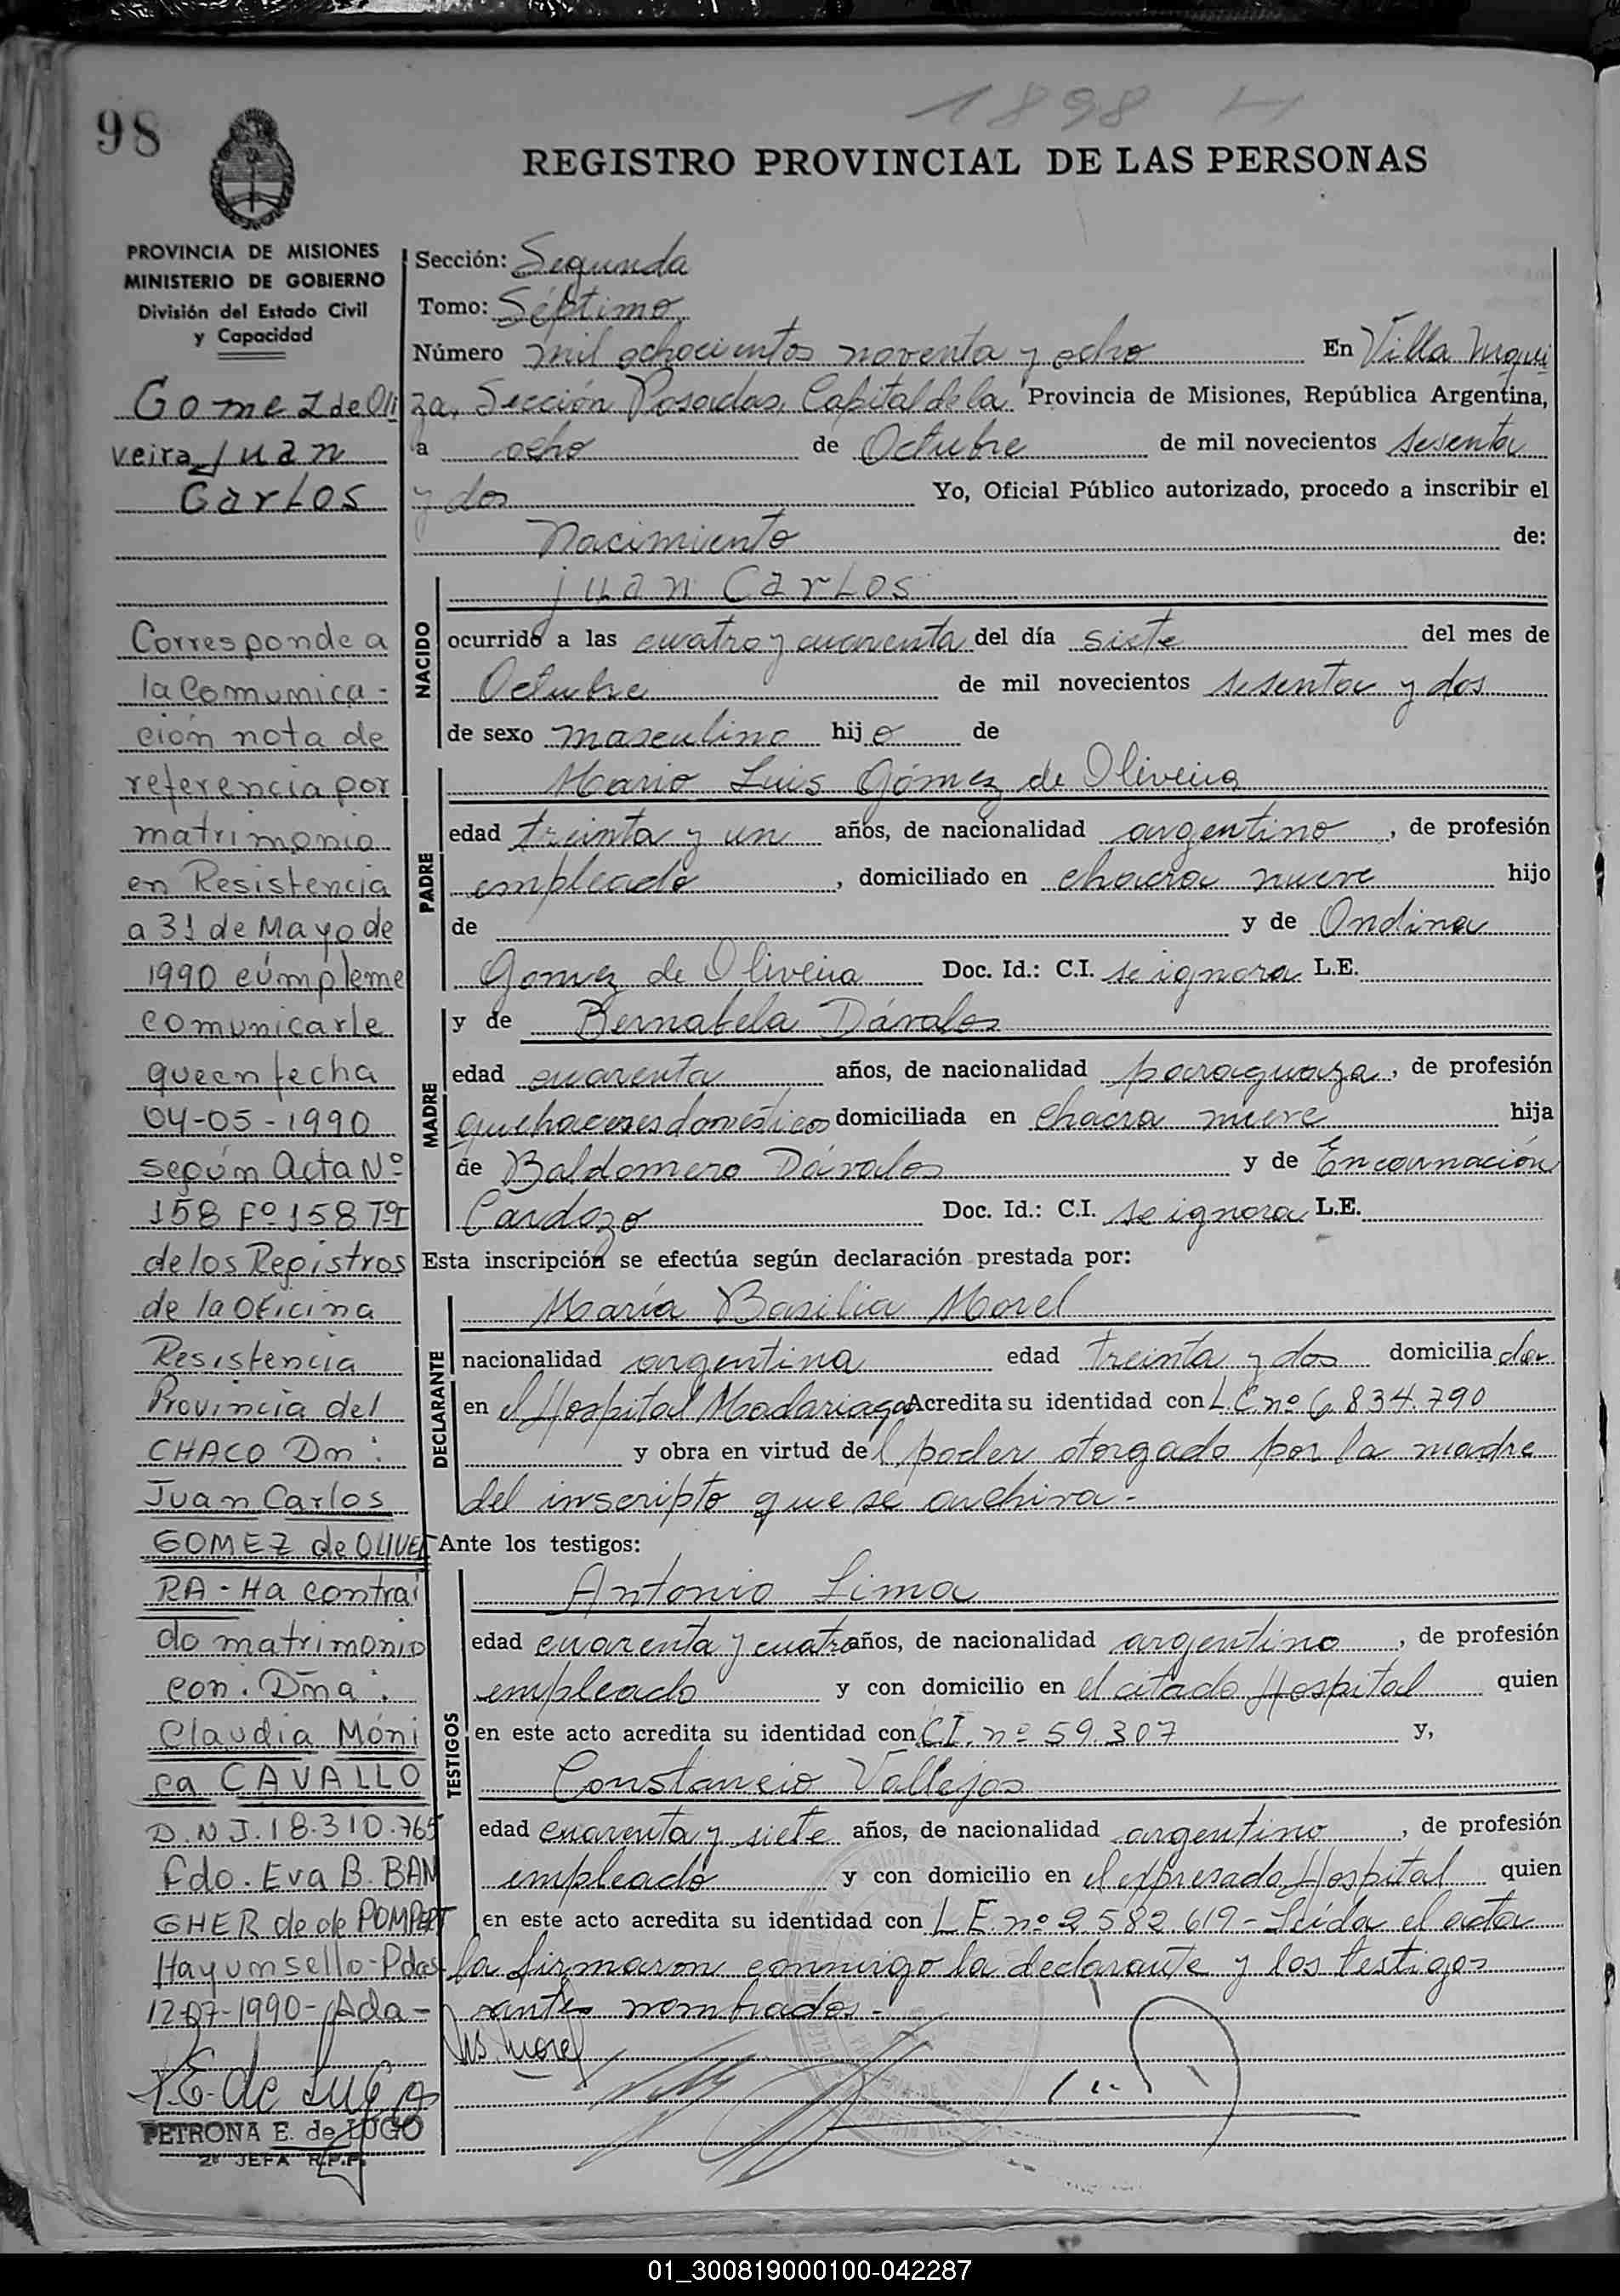 1898 H
98
REGISTRO PROVINCIAL DE LAS PERSONAS
PROVINCIA DE MISIONES
MINISTERIO DE GOBIERNO
División del Estado Civil
y Capacidad
Gomez de Oli
veira Juan
Carlos
Corresponde a
la Comunica-
ción nota de
referencia por
matrimonio
en Resistencia
a 31 de Mayo de
1990 cúmpleme
comunicarle
que en fecha
04-05-1990
según Acta Nº
158 Fº 158 TºI
de los Registros
de la Oficina
Resistencia
Provincia del
CHACO Dn:
Juan Carlos
GOMEZ de OLIVEI
RA - Ha contraí
do matrimonio
con. Dña:
Claudia Móni
ca CAVALLO
D.N.I. 18.310.765
Fdo. Eva B. BAN
GHER de de POMPERT
Hay un sello - Pdas
12-07-1990 - Ada -
P.E. de Lugo
PETRONA E. de LUGO
2ª JEFA R.P.P.
Sección: Segunda
Tomo: Séptimo
Número mil ochocientos noventa y ocho En Villa Urqui
za, Sección Posadas, Capital de la Provincia de Misiones, República Argentina,
a ocho de Octubre de mil novecientos sesenta
y dos Yo, Oficial Público autorizado, procedo a inscribir el
Nacimiento de:
NACIDO
Juan Carlos
ocurrido a las cuatro y cuarenta del día siete del mes de
Octubre de mil novecientos sesenta y dos
de sexo masculino hijo de
PADRE
Mario Luis Gómez de Oliveira
edad treinta y un años, de nacionalidad argentino, de profesión
empleado, domiciliado en chacra nueve hijo
de y de Ondina
Gomez de Oliveira Doc. Id.: C.I. se ignora L.E.
MADRE
y de Bernabela Dávalos
edad cuarenta años, de nacionalidad paraguaya, de profesión
quehaceres domésticos domiciliada en chacra nueve hija
de Baldomero Dávalos y de Encarnación
Cardozo Doc. Id.: C.I. se ignora L.E.
Esta inscripción se efectúa según declaración prestada por:
DECLARANTE
María Basilia Morel
nacionalidad argentina edad treinta y dos domiciliada
en el Hospital Madariaga Acredita su identidad con L.C. nº 6.834.790
y obra en virtud del poder otorgado por la madre
del inscripto que se archiva.-
Ante los testigos:
TESTIGOS
Antonio Lima
edad cuarenta y cuatro años, de nacionalidad argentino, de profesión
empleado y con domicilio en el citado Hospital quien
en este acto acredita su identidad con C.I. nº 59.307 y,
Constancio Vallejos
edad cuarenta y siete años, de nacionalidad argentino, de profesión
empleado y con domicilio en el expresado Hospital quien
en este acto acredita su identidad con L.E. nº 2.582.619 - Leída el acta
la firmaron conmigo la declarante y los testigos
antes nombrados.-
Morel
01_300819000100-042287